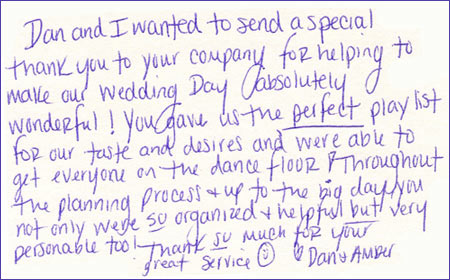 Dan and I wanted to send a special
thank you to your company for helping to
make our Wedding Day absolutely
wonderful! You gave us the perfect play list
for our taste and desires and were able to
get everyone on the dance floor! Throughout
the planning process + up to the big day, you
not only were so organized + helpful but very
personable too! Thank so much for your
great service ☺ ♡ Dan + Amber